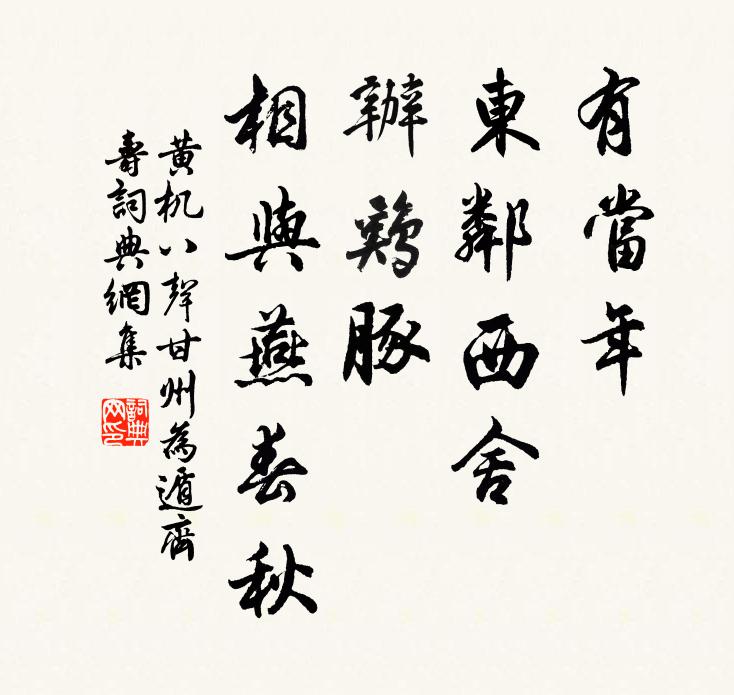 有當年
東鄰西舍
辦鷄豚
相與燕春秋
黃机八聲甘州為遁齋
壽詞典網集
詞典網印